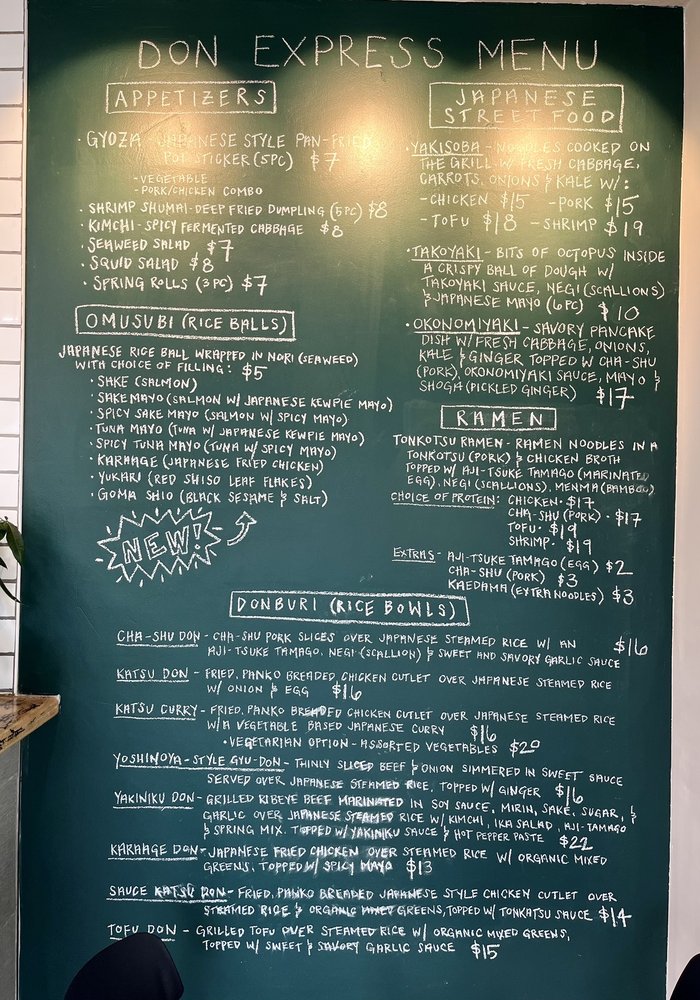 DON EXPRESS MENU
APPETIZERS
· GYOZA - JAPANESE STYLE PAN-FRIED
POT STICKER (5PC) $7
- VEGETABLE
- PORK/CHICKEN COMBO
· SHRIMP SHUMAI - DEEP FRIED DUMPLING (5PC) $8
· KIMCHI - SPICY FERMENTED CABBAGE $8
· SEAWEED SALAD $7
· SQUID SALAD $8
· SPRING ROLLS (3PC) $7
OMUSUBI (RICE BALLS)
JAPANESE RICE BALL WRAPPED IN NORI (SEAWEED)
WITH CHOICE OF FILLING: $5
· SAKE (SALMON)
· SAKE MAYO (SALMON W/ JAPANESE KEWPIE MAYO)
· SPICY SAKE MAYO (SALMON W/ SPICY MAYO)
· TUNA MAYO (TUNA W/ JAPANESE KEWPIE MAYO)
· SPICY TUNA MAYO (TUNA W/ SPICY MAYO)
· KARAAGE (JAPANESE FRIED CHICKEN)
· YUKARI (RED SHISO LEAF FLAKES)
· GOMA SHIO (BLACK SESAME & SALT)
NEW!
JAPANESE
STREET FOOD
· YAKISOBA - NOODLES COOKED ON
THE GRILL W/ FRESH CABBAGE,
CARROTS, ONIONS & KALE W/:
- CHICKEN $15 - PORK $15
- TOFU $18 - SHRIMP $19
· TAKOYAKI - BITS OF OCTOPUS INSIDE
A CRISPY BALL OF DOUGH W/
TAKOYAKI SAUCE, NEGI (SCALLIONS)
& JAPANESE MAYO (6PC) $10
· OKONOMIYAKI - SAVORY PANCAKE
DISH W/ FRESH CABBAGE, ONIONS,
KALE & GINGER TOPPED W/ CHA-SHU
(PORK), OKONOMIYAKI SAUCE, MAYO &
SHOGA (PICKLED GINGER) $17
RAMEN
TONKOTSU RAMEN - RAMEN NOODLES IN A
TONKOTSU (PORK) & CHICKEN BROTH
TOPPED W/ AJI-TSUKE TAMAGO (MARINATED
EGG), NEGI (SCALLIONS), MENMA (BAMBOO)
CHOICE OF PROTEIN: CHICKEN · $17
CHA-SHU (PORK) · $17
TOFU · $19
SHRIMP · $19
EXTRAS - AJI-TSUKE TAMAGO (EGG) $2
CHA-SHU (PORK) $3
KAEDAMA (EXTRA NOODLES) $3
DONBURI (RICE BOWLS)
CHA-SHU DON - CHA-SHU PORK SLICES OVER JAPANESE STEAMED RICE W/ AN $16
AJI-TSUKE TAMAGO, NEGI (SCALLION) & SWEET AND SAVORY GARLIC SAUCE
KATSU DON - FRIED, PANKO BREADED CHICKEN CUTLET OVER JAPANESE STEAMED RICE
W/ ONION & EGG $16
KATSU CURRY - FRIED, PANKO BREADED CHICKEN CUTLET OVER JAPANESE STEAMED RICE
W/ A VEGETABLE BASED JAPANESE CURRY $16
· VEGETARIAN OPTION - ASSORTED VEGETABLES $20
YOSHINOYA-STYLE GYU-DON - THINLY SLICED BEEF & ONION SIMMERED IN SWEET SAUCE
SERVED OVER JAPANESE STEAMED RICE, TOPPED W/ GINGER $16
YAKINIKU DON - GRILLED RIBEYE BEEF MARINATED IN SOY SAUCE, MIRIN, SAKE, SUGAR, &
GARLIC OVER JAPANESE STEAMED RICE W/ KIMCHI, IKA SALAD, AJI-TAMAGO
& SPRING MIX. TOPPED W/ YAKINIKU SAUCE & HOT PEPPER PASTE $22
KARAAGE DON - JAPANESE FRIED CHICKEN OVER STEAMED RICE W/ ORGANIC MIXED
GREENS, TOPPED W/ SPICY MAYO $13
SAUCE KATSU DON - FRIED, PANKO BREADED JAPANESE STYLE CHICKEN CUTLET OVER
STEAMED RICE & ORGANIC MIXED GREENS, TOPPED W/ TONKATSU SAUCE $14
TOFU DON - GRILLED TOFU OVER STEAMED RICE W/ ORGANIC MIXED GREENS,
TOPPED W/ SWEET & SAVORY GARLIC SAUCE $15